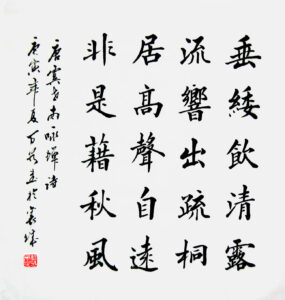 垂緌飲清露
流響出疏桐
居高聲自遠
非是藉秋風
唐虞世南詠蟬詩
庚寅年夏